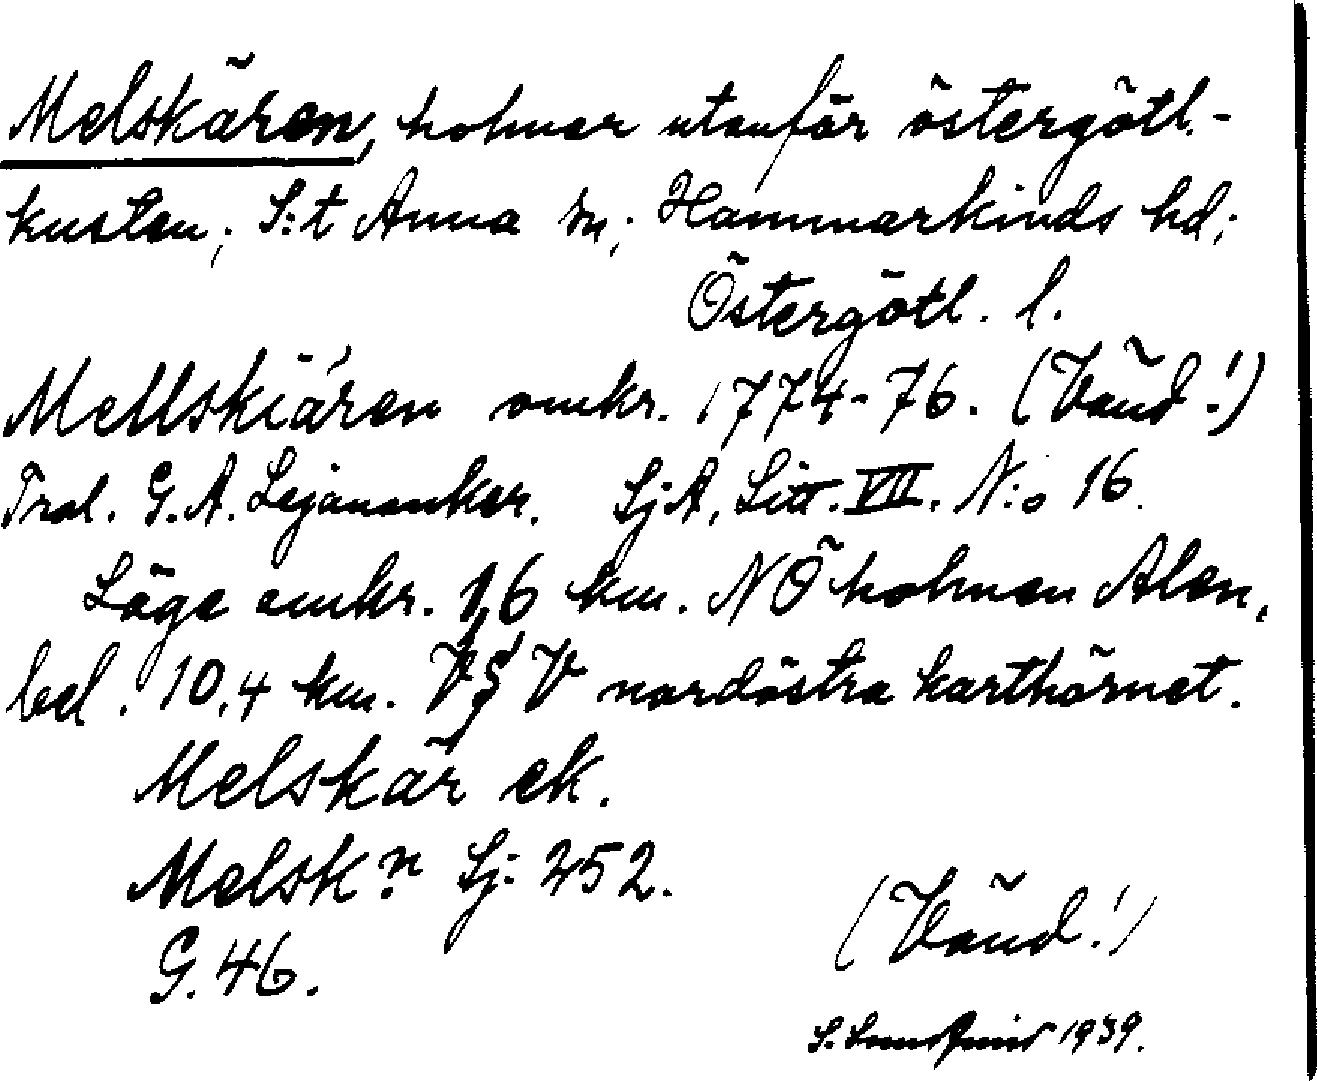 Melskären, holmar utanför östergötl.-
kusten; S:t Anna sn; Hammarkinds hd;
Östergötl. l.
Mellskiären omkr. 1774-76. (Vänd!)
Trol. G. A. Lejonanker. SjA, Litt. VII. N:o 16.
Läge omkr. 1,6 km. NÖ holmen Alen,
bel. 10,4 km. V§V nordöstra karthörnet.
Melskär ek.
Melsk:n Sj: 252.
G. 46.
(Vänd!)
S. 1939.